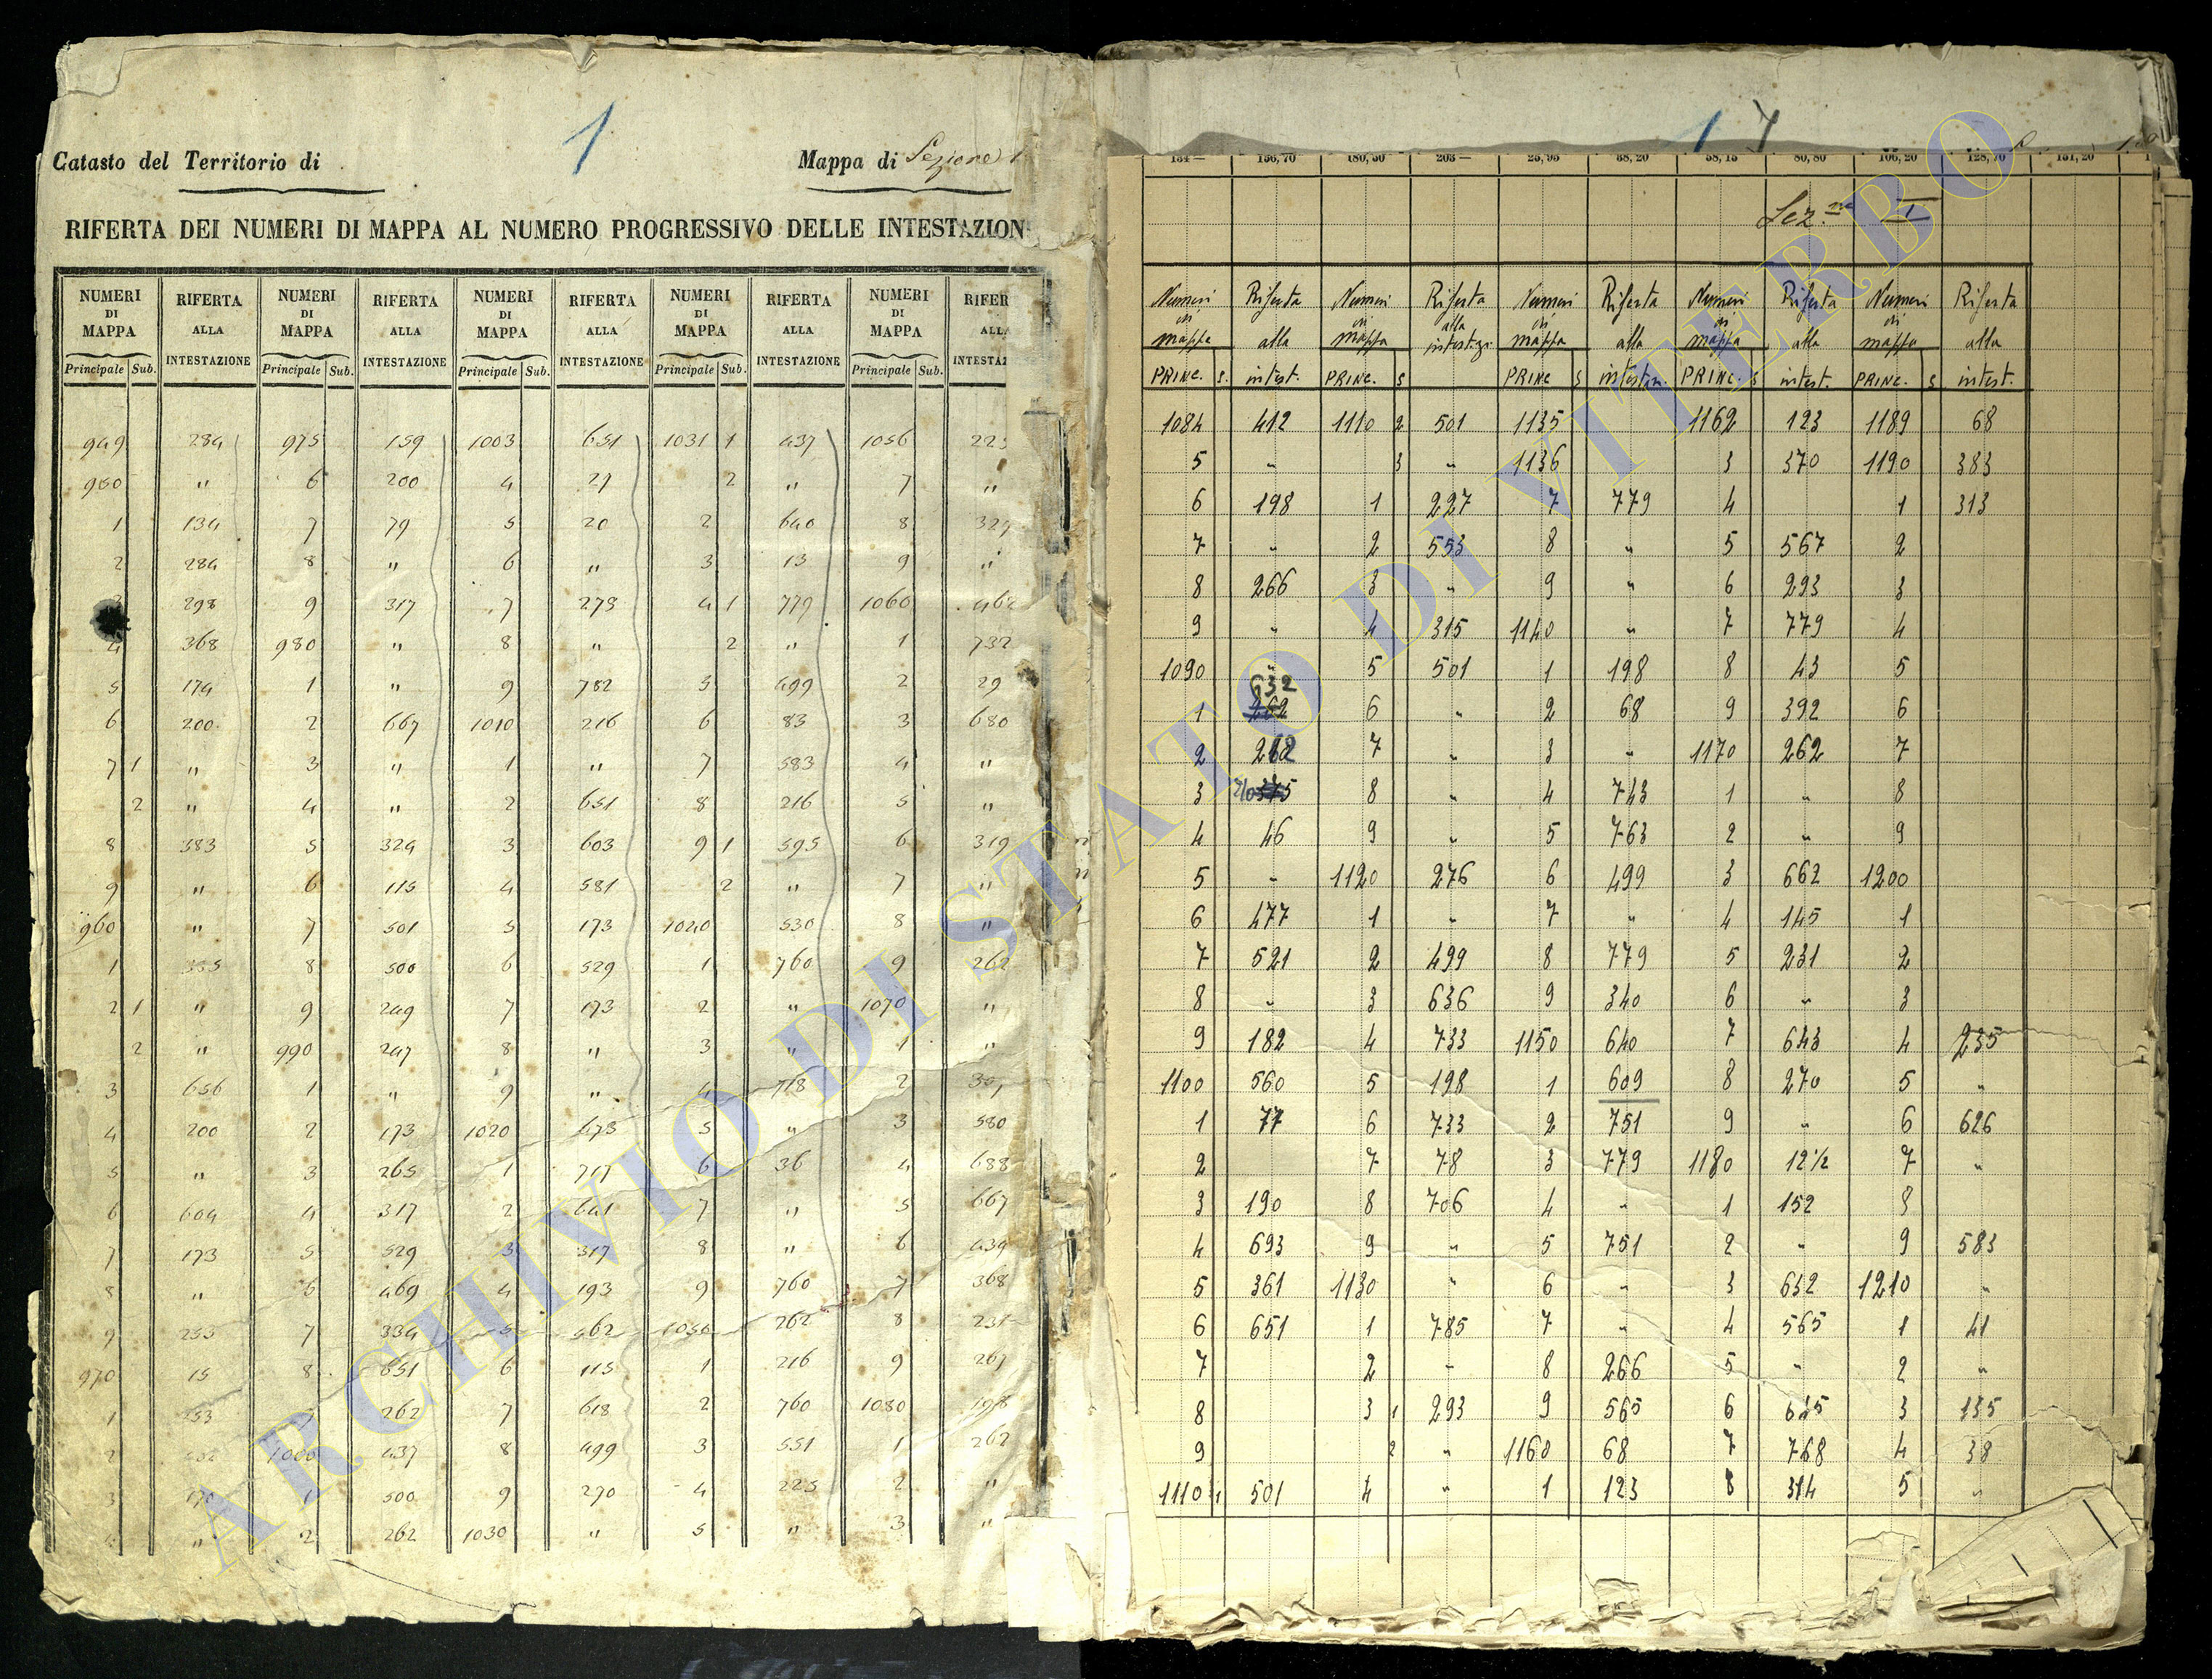 1
Catasto del Territorio di
Mappa di Sezione 1
RIFERTA DEI NUMERI DI MAPPA AL NUMERO PROGRESSIVO DELLE INTESTAZION
NUMERI DI MAPPA RIFERTA ALLA INTESTAZIONE NUMERI DI MAPPA RIFERTA ALLA INTESTAZIONE NUMERI DI MAPPA RIFERTA ALLA INTESTAZIONE NUMERI DI MAPPA RIFERTA ALLA INTESTAZIONE NUMERI DI MAPPA RIFER ALLA INTESTAZ
Principale Sub. Principale Sub. Principale Sub. Principale Sub. Principale Sub.
949 284 975 159 1003 651 1031 1 437 1056 225
950 " 6 200 4 27 2 " 7 "
1 134 7 79 5 20 2 640 8 329
2 284 8 " 6 " 3 13 9 "
298 9 317 7 273 4 1 779 1060 462
4 368 980 " 8 " 2 " 1 732
5 174 1 " 9 782 5 499 2 29
6 200 2 667 1010 216 6 83 3 680
7 1 " 3 " 1 " 7 583 4 "
2 " 4 " 2 651 8 216 5 "
8 383 5 324 3 603 9 1 595 6 319
9 " 6 115 4 581 2 " 7 "
960 " 7 501 5 173 1040 530 8 "
1 335 8 500 6 529 1 760 9 262
2 1 " 9 249 7 173 2 " 1070 "
2 " 990 247 8 " 3 " 1 "
3 656 1 " 9 " 4 718 2
4 200 2 173 1020 473 5 " 3 580
5 " 3 265 1 717 6 36 4 688
6 604 4 317 2 641 7 " 5 667
7 173 5 529 3 317 8 " 6 439
8 " 6 469 4 193 9 760 7 368
9 253 7 334 5 562 1050 262 8 231
970 15 8 651 6 115 1 216 9 267
1 262 7 618 2 760 1080 198
2 1000 437 8 499 3 551 1 262
3 170 1 500 9 270 4 225 2 "
" 2 262 1030 " 5 " 3 "
1 7
134 — 156,70 180,50 203 — 25,95 38,20 58,15 80,80 106,20 128,70 151,20
Sez.ne I
Numeri di mappa Riferta alla intest. Numeri di mappa Riferta alla intestaz. Numeri di mappa Riferta alla intestaz. Numeri di mappa Riferta alla intest. Numeri di mappa Riferta alla intest.
PRINC. S. PRINC. S PRINC S PRINC. S PRINC. S
1084 412 1110 2 501 1135 1162 123 1189 68
5 " 3 " 1136 3 370 1190 383
6 198 1 227 7 779 4 1 313
7 " 2 553 8 " 5 567 2
8 266 3 " 9 " 6 293 3
9 " 4 315 1140 " 7 779 4
1090 " 5 501 1 198 8 43 5
1 632 262 6 " 2 68 9 392 6
2 262 7 " 3 " 1170 262 7
3 8 " 4 743 1 " 8
4 46 9 " 5 763 2 " 9
5 " 1120 276 6 499 3 662 1200
6 477 1 " 7 " 4 145 1
7 521 2 499 8 779 5 231 2
8 " 3 636 9 340 6 " 3
9 182 4 733 1150 640 7 643 4 235
1100 560 5 198 1 609 8 270 5 "
1 77 6 733 2 751 9 " 6 626
2 7 78 3 779 1180 12 1/2 7 "
3 190 8 706 4 " 1 152 8
4 693 9 " 5 751 2 " 9 583
5 361 1130 " 6 " 3 632 1210 "
6 651 1 785 7 " 4 565 1 41
7 2 " 8 266 5 " 2 "
8 3 1 293 9 565 6 3 135
9 2 " 1160 68 7 768 4 38
1110 1 501 4 " 1 123 8 314 5 "
ARCHIVIO DI STATO DI VITERBO